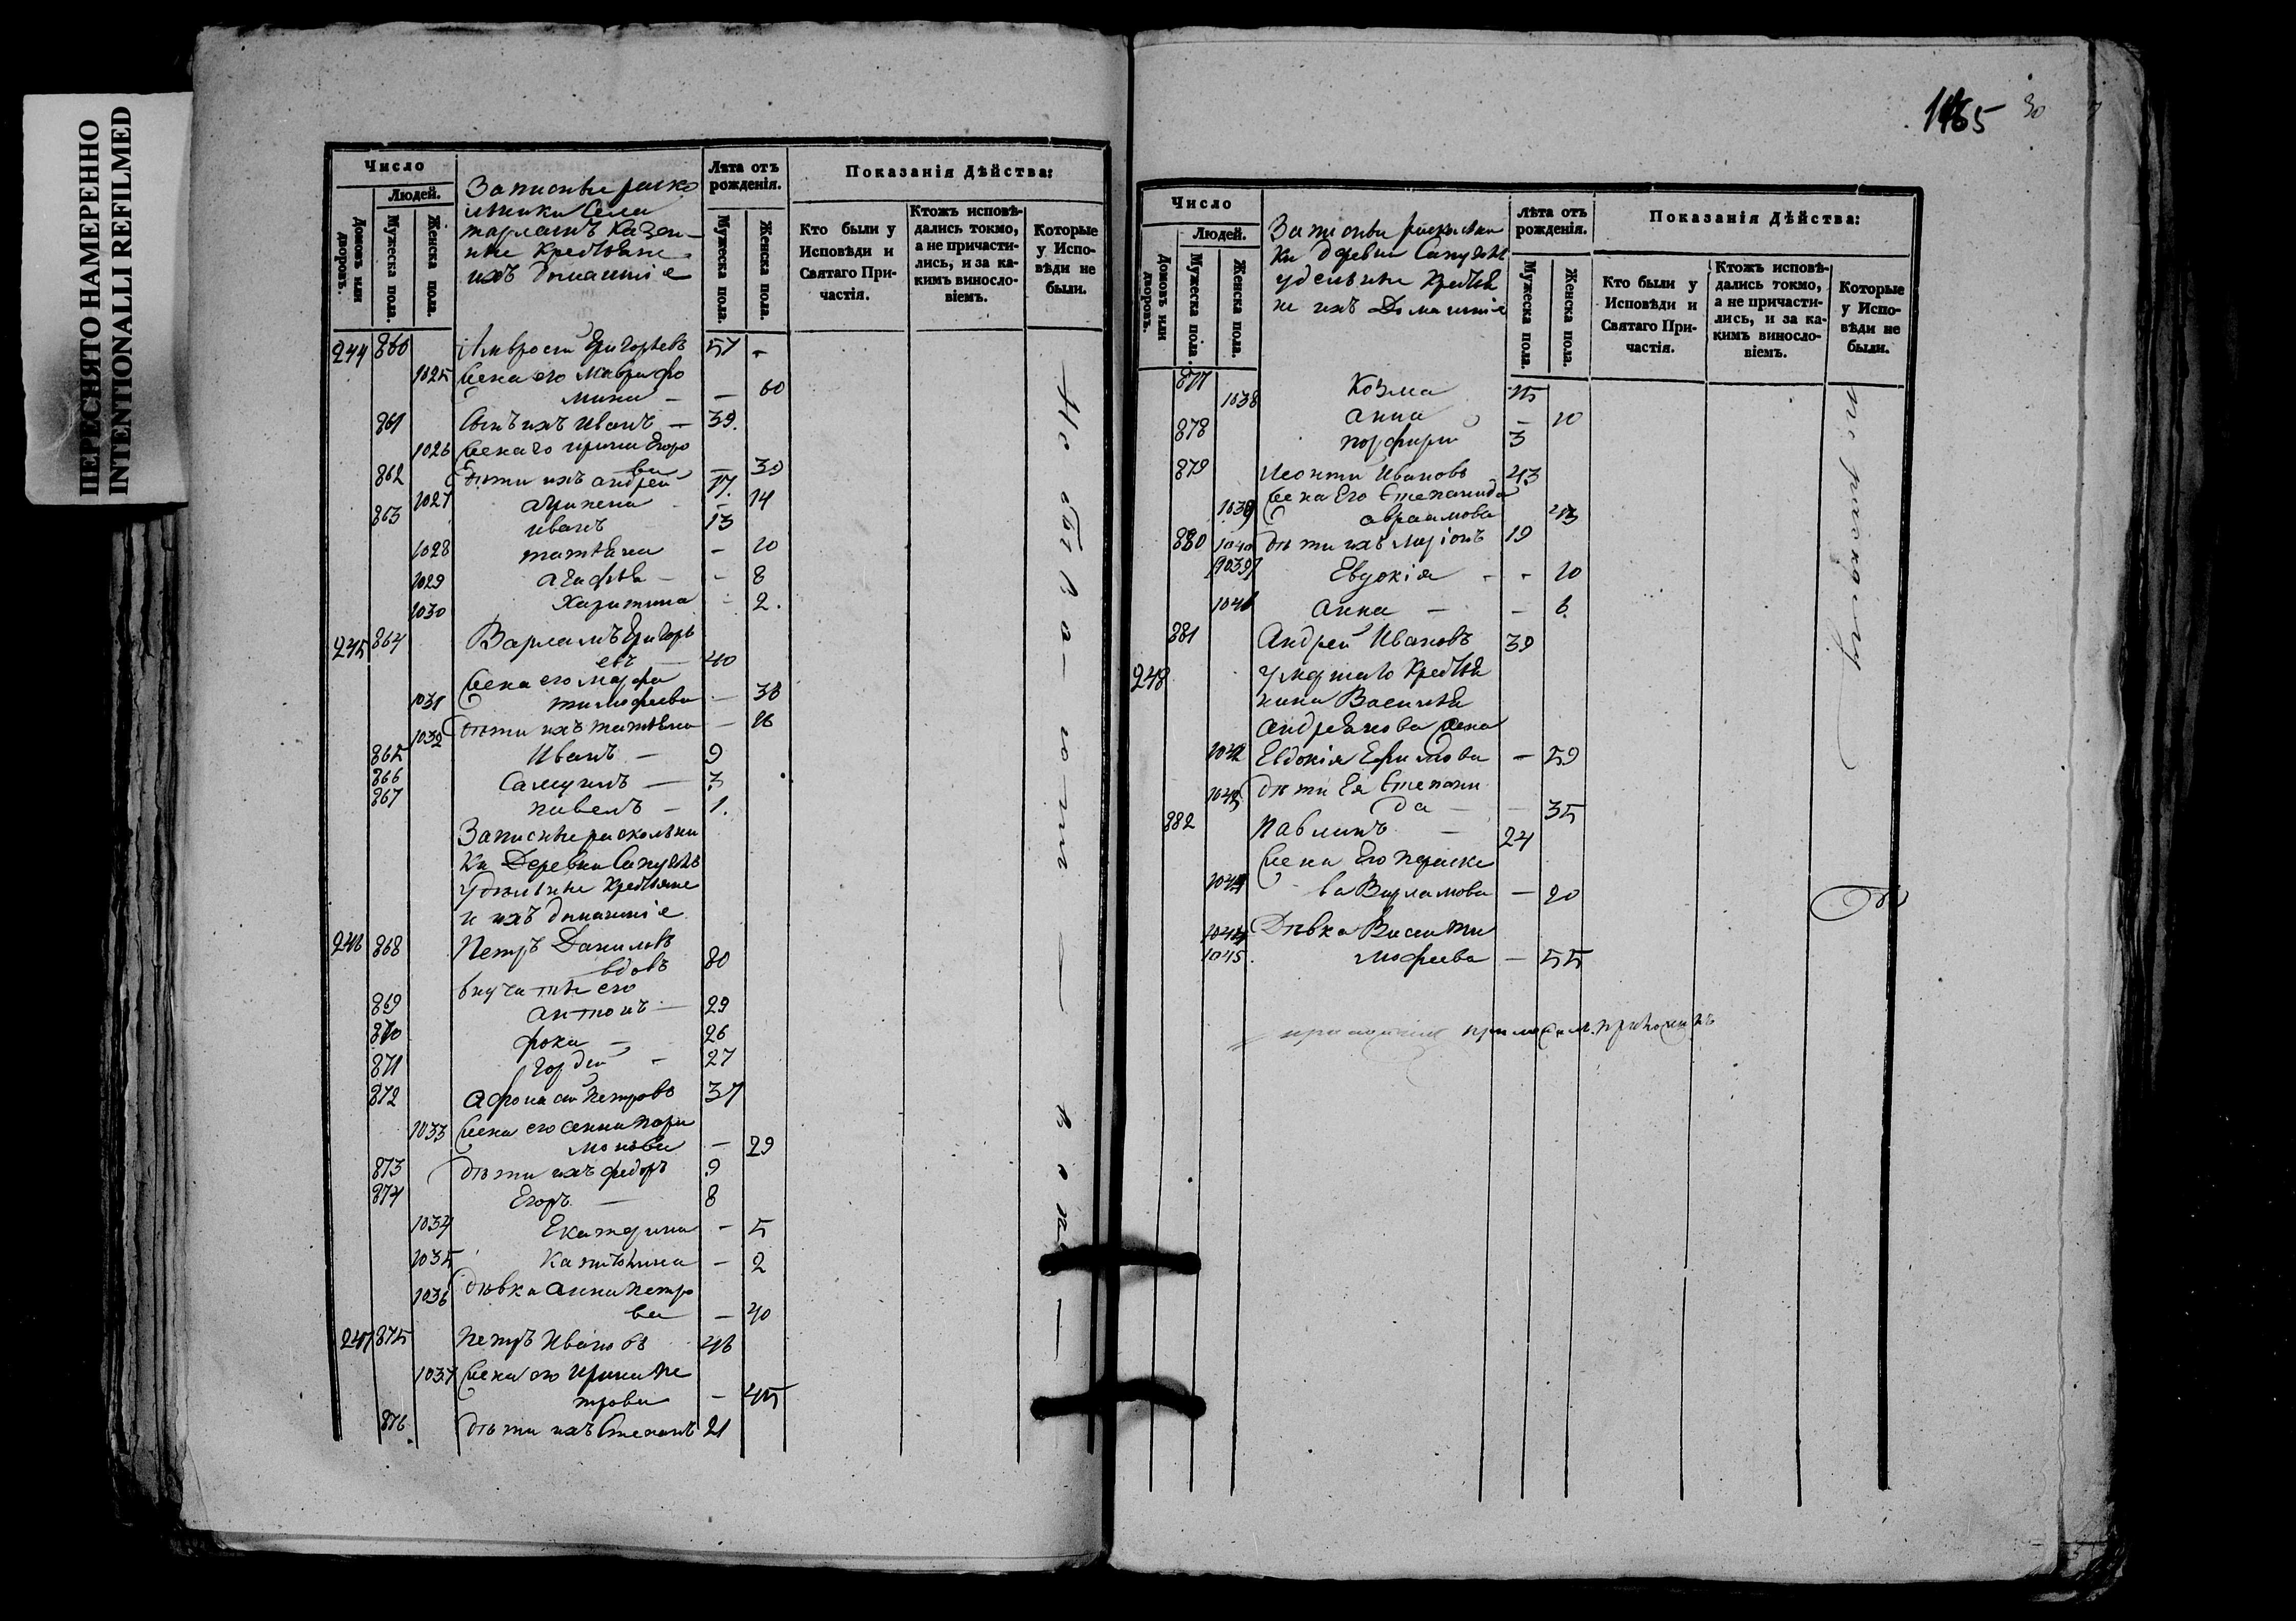 ПЕРЕСНЯТО НАМЕРЕННО
INTENTIONALLI REFILMED
Число
Людей.
Домовъ или дворовъ.
Мужеска пола.
Женска пола.
Записные раско
льники Села
Казен
ные Крестьяне
ихъ домашніе
Лѣта отъ рожденія.
Мужеска пола.
Женска пола.
Показанія Дѣйства:
Кто были у Исповѣди и Святаго Причастія.
Ктожъ исповѣдались токмо, а не причастились, и за какимъ винословіемъ.
Которые у Исповѣди не были.
244 860 Амвросій Григорьевъ 57 -
1025 Жена его Мавра Фо
мина - - 60
861 Сынъ ихъ Иванъ - 39.
1026 Жена его Ирина Егоро
ва - 39
862 Дѣти ихъ Андрей 17.
1027 Агрипена - 14
863 Иванъ 13
1028 Татьяна - 10
1029 Агафья - - 8
1030 Харитина - 2.
245 864 Варламъ Григорь
евъ - 40
Жена его Марфа
1031 Тимофеева - 38
1032 Дѣти ихъ Татьяна - 16
865 Иванъ - 9
866 Самуилъ - 3
867 Павелъ - 1.
Записные расколъни
ки Деревни
Удѣльные Крестьяне
и ихъ домашніе
246 868 Петръ Даниловъ
вдовъ 80
внучаты его
869 Антонъ - 29
870 Фока - 26
871 Гордей - 27
872 Афонасій Петровъ 37
1033 Жена его Анна Пари
монова - 29
873 Дѣти ихъ Федоръ 9
874 Егоръ - 8
1034 Екатерина - 5
1035 Капитолина - 2
1036 Дѣвка Анна Петро
ва - 40
247 875 Петръ Ивановъ 46
1037 Жена его Ирина Пе
трова - 45
876. Дѣти ихъ Степанъ 21
Не бы ва ю тъ
1165 30
Число
Людей.
Домовъ или дворовъ.
Мужеска пола.
Женска пола.
Записные раскольни
ки деревни
удельные Крестья
не ихъ Домашніе
Лѣта отъ рожденія.
Мужеска пола.
Женска пола.
Показанія Дѣйства:
Кто были у Исповѣди и Святаго Причастія.
Ктожъ исповѣдались токмо, а не причастились, и за какимъ винословіемъ.
Которые у Исповѣди не были.
877 Козма 15
1038 Анна - 10
878 Порфирій 3
879 Леонтій Ивановъ 43
Жена Его Степанида
1039 Авраамова 43
880 1040 Дѣти ихъ Ларіонъ 19
1039 Евдокія - - 10
1041 Анна - - 6
881 Андрей Ивановъ 39
248 Умершаго Крестья
нина Василья
Андреянова жена
1042 Евдокія Ефимова - 59
1043 Дѣти Ея Степани
да - - 35
882 Павлинъ - 24
Жена Его Параске
1044 ва Варламова - 20
1044 Дѣвка Васса Ти
1045. мофеева - 55
по расколу